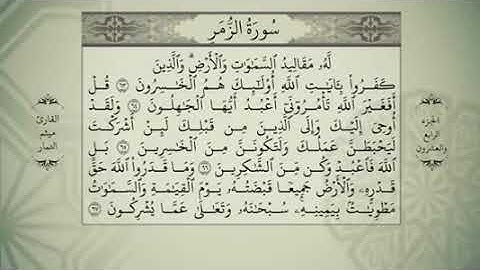 سُورَةُ الزُّمَر
لَّهُۥ مَقَالِيدُ السَّمَٰوَٰتِ وَالْأَرْضِ ۗ وَالَّذِينَ
كَفَرُوا۟ بِـَٔايَٰتِ اللَّهِ أُو۟لَٰٓئِكَ هُمُ الْخَٰسِرُونَ ٦٣ قُلْ
أَفَغَيْرَ اللَّهِ تَأْمُرُوٓنِّىٓ أَعْبُدُ أَيُّهَا الْجَٰهِلُونَ ٦٤ وَلَقَدْ
أُوحِىَ إِلَيْكَ وَإِلَى الَّذِينَ مِن قَبْلِكَ لَئِنْ أَشْرَكْتَ
لَيَحْبَطَنَّ عَمَلُكَ وَلَتَكُونَنَّ مِنَ الْخَٰسِرِينَ ٦٥ بَلِ
اللَّهَ فَاعْبُدْ وَكُن مِّنَ الشَّٰكِرِينَ ٦٦ وَمَا قَدَرُوا۟ اللَّهَ حَقَّ
قَدْرِهِۦ وَالْأَرْضُ جَمِيعًا قَبْضَتُهُۥ يَوْمَ الْقِيَٰمَةِ وَالسَّمَٰوَٰتُ
مَطْوِيَّٰتٌۢ بِيَمِينِهِۦ ۚ سُبْحَٰنَهُۥ وَتَعَٰلَىٰ عَمَّا يُشْرِكُونَ ٦٧
الجزء
الرابع
والعشرون
القارئ
ميثم
التمار